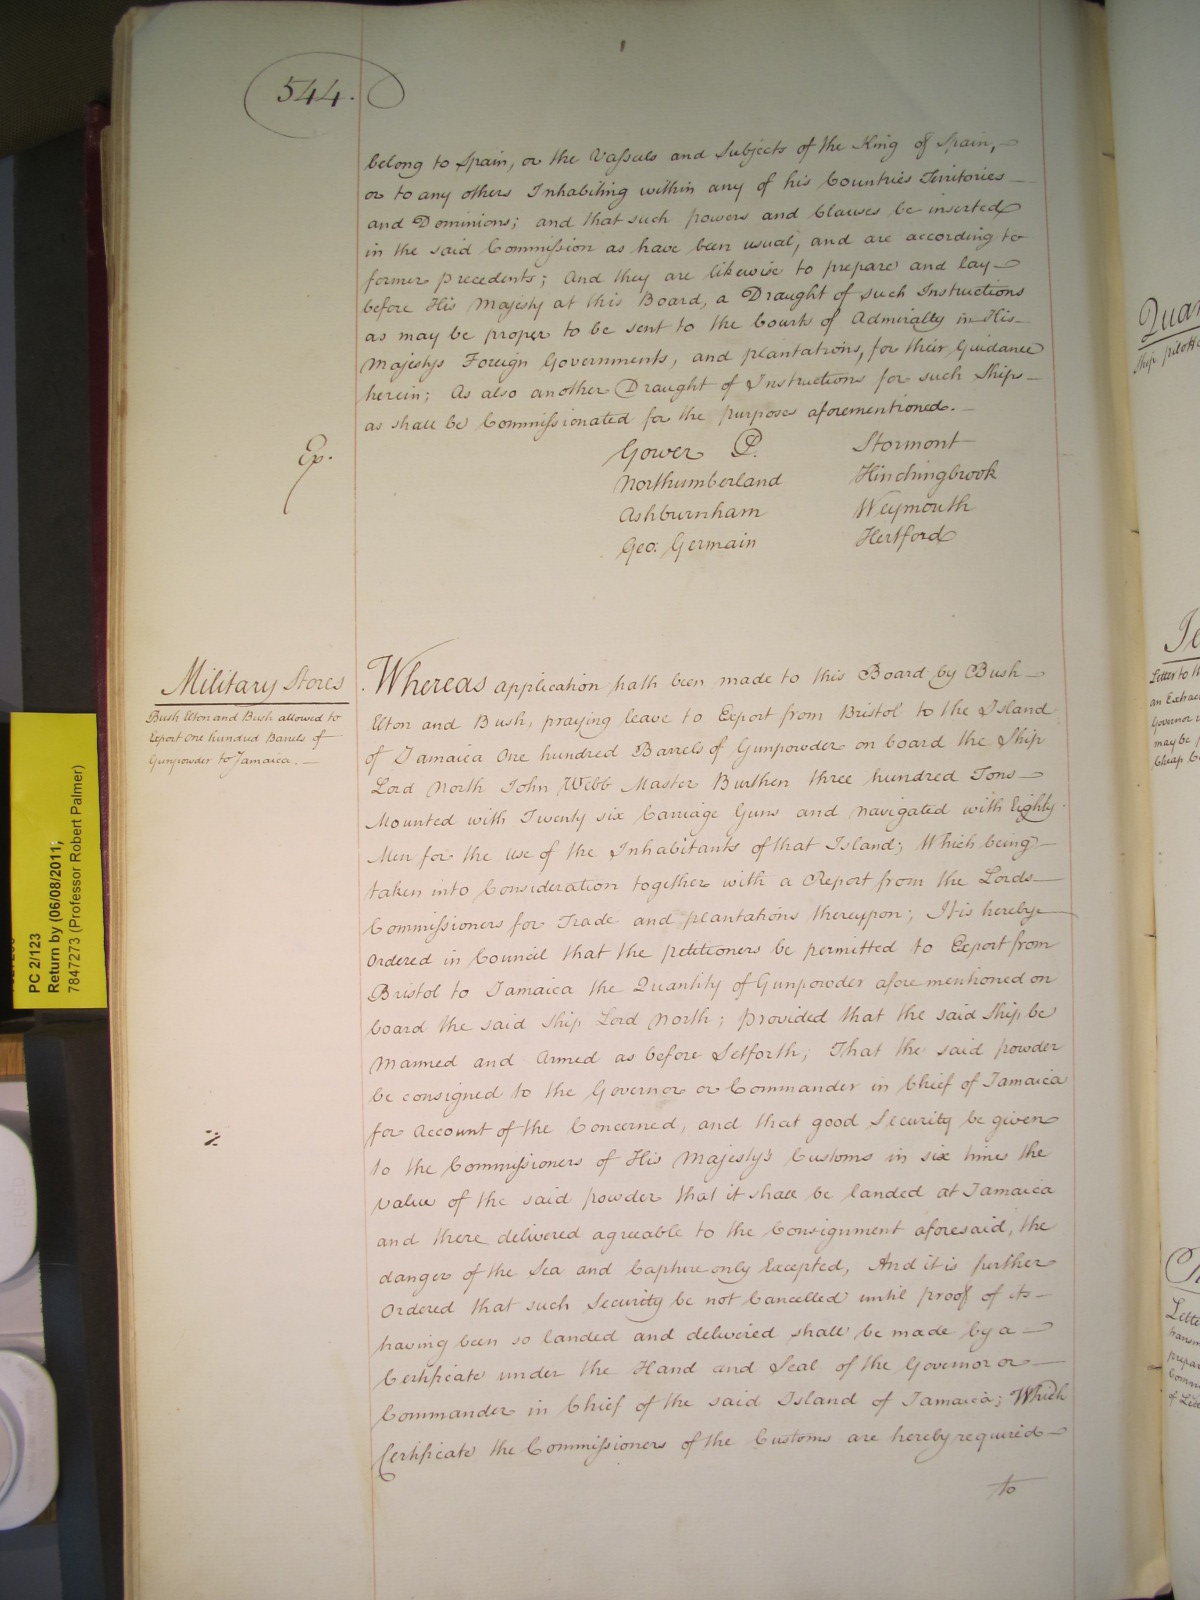 544.
belong to Spain, or the Vassals and Subjects of the King of Spain,
or to any others Inhabiting within any of his Countries Territories
and Dominions; and that such powers and Clauses be inserted
in the said Commission as have been usual, and are according to
former precedents; And they are likewise to prepare and lay
before His Majesty at this Board, a Draught of such Instructions
as may be proper to be sent to the Courts of Admiralty in His
Majestys Foreign Governments, and plantations, for their Guidance
herein; As also another Draught of Instructions for such Ships
as shall be Commissionated for the purposes aforementioned.
Ex.
Gower P. Stormont
Northumberland Hinchingbrook
Ashburnham Weymouth
Geo. Germain Hertford
Military Stores
Bush Elton and Bush allowed to
Export One hundred Barrels of
Gunpowder to Jamaica.
Whereas application hath been made to this Board by Bush
Elton and Bush, praying leave to Export from Bristol to the Island
of Jamaica One hundred Barrels of Gunpowder on board the Ship
Lord North John Webb Master Burthen three hundred Tons
Mounted with Twenty six Carriage Guns and navigated with Eighty
Men for the use of the Inhabitants of that Island; Which being
taken into Consideration together with a Report from the Lords
Commissioners for Trade and plantations thereupon; It is hereby
Ordered in Council that the petitioners be permitted to Export from
Bristol to Jamaica the Quantity of Gunpowder afore mentioned on
board the said Ship Lord North; provided that the said Ship be
Manned and Armed as before Setforth; That the said powder
be consigned to the Governor or Commander in Chief of Jamaica
for Account of the Concerned, and that good Security be given
to the Commissioners of His Majesty's Customs in six times the
value of the said powder that it shall be landed at Jamaica
and there delivered agreable to the Consignment aforesaid, the
danger of the Sea and Capture only Excepted, And it is further
Ordered that such Security be not Cancelled until proof of its
having been so landed and delivered shall be made by a
Certificate under the Hand and Seal of the Governor or
Commander in Chief of the said Island of Jamaica; Which
Certificate the Commissioners of the Customs are hereby required
to
PC 2/123
Return by (06/08/2011;
7847273 (Professor Robert Palmer)
Ship
Letter to th
an Extrac
Governor
may be